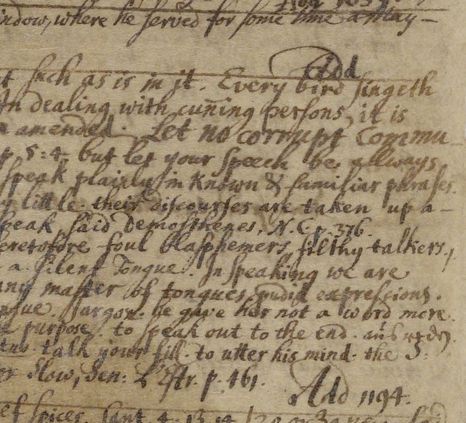 indow, where he served for some time a may-
Add
t such as is in it. Every bird singeth
In dealing with cuning persons, it is
amended. Let no corrupt Commu-
p. 5:4. but let your speech be allways
speak plainly in known & familiar phrases.
y little their discourses are taken up a-
peak, said demosthenes, N.C. p. 376.
eretofore foul blasphemers, filthy talkers,
a silent Tongue. In speaking we are
any matter of tongues, expressions.
Jargon. he gave her not a word more.
e purpose to speak out to the end.
talk your fill. to utter his mind. the
or slow, Sen: L'Estr. p. 461.
Add 1194.
ef spices, Cant. 4. 13. 14